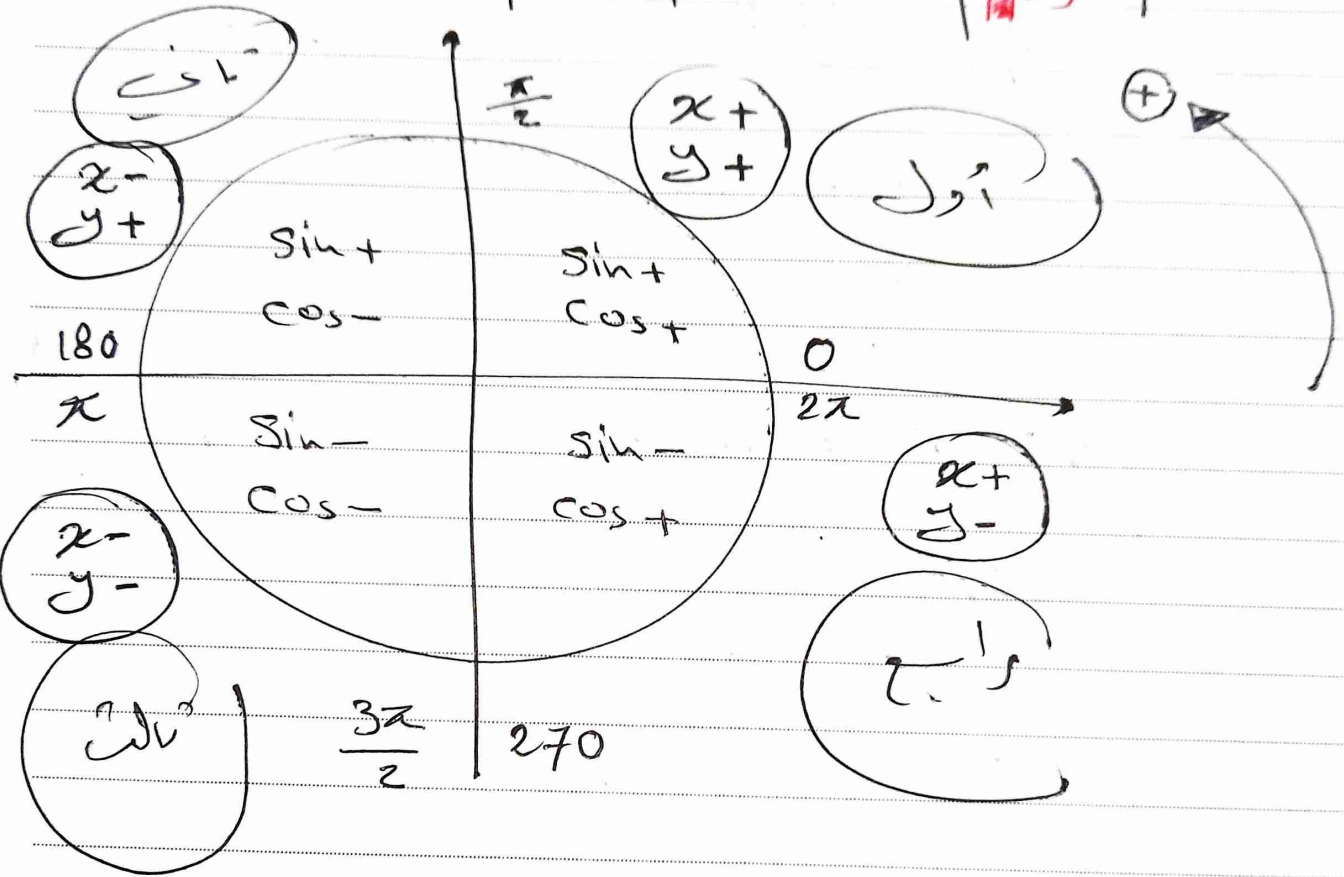 ثاني
π/2
x +
y +
+
أول
x -
y +
sin +
cos -
sin +
cos +
180
0
π
2π
sin -
cos -
sin -
cos +
x +
y -
x -
y -
رابع
ثالث
3π/2
270